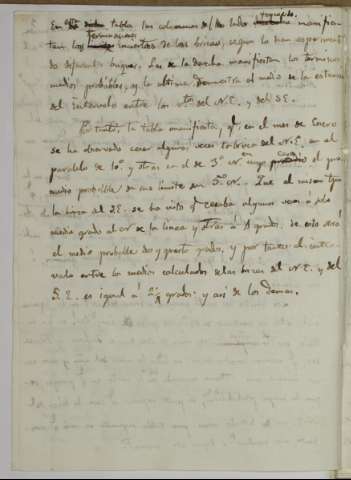 En esta tabla las columnas del lado izquierdo manifies-
tan los terminaciones inciertas de las brisas, segun la han experimenta-
do diferentes buques. Las de la derecha manifiestan los terminos
medios probables, y la ultima demuestra el medio de la estension
del intervalo entre los vtos. del N.E. y del S.E.
Por tanto, la tabla manifiesta, qe. en el mes de Enero
se ha observado cesar algunas veces la brisa del N.E. en el
paralelo de 10.° y otras en el de 3.° N. en cuyo caso el pro-
medio probable de este limite son 5.° N. Que al mismo tpo.
la brisa del S.E. se ha visto qe. cesaba algunas veces á solo
medio grado al N. de la linea y otras á 4 grados; de esto será
el medio probable dos y quarto grados, y por tanto el inter-
valo entre los medios calculados de las brisas del N.E. y del
S.E. es igual á 2 3/4 grados; y asi de los demas.